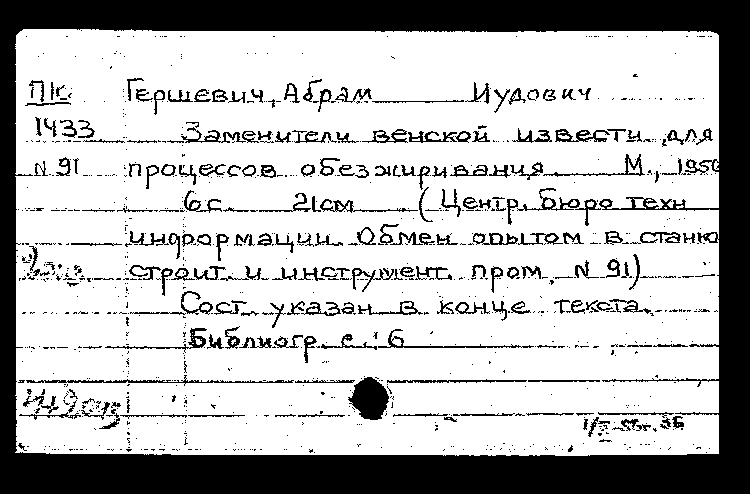 ПК Гершевич, Абрам Иудович
1433 Заменители венской извести для
N 91 процессов обезжиривания. М., 1956
6 с. 21 см (Центр. бюро техн
информации. Обмен опытом в станко
строит. и инструмент. пром. N 91)
Сост. указан в конце текста.
Библиогр. с. : 6